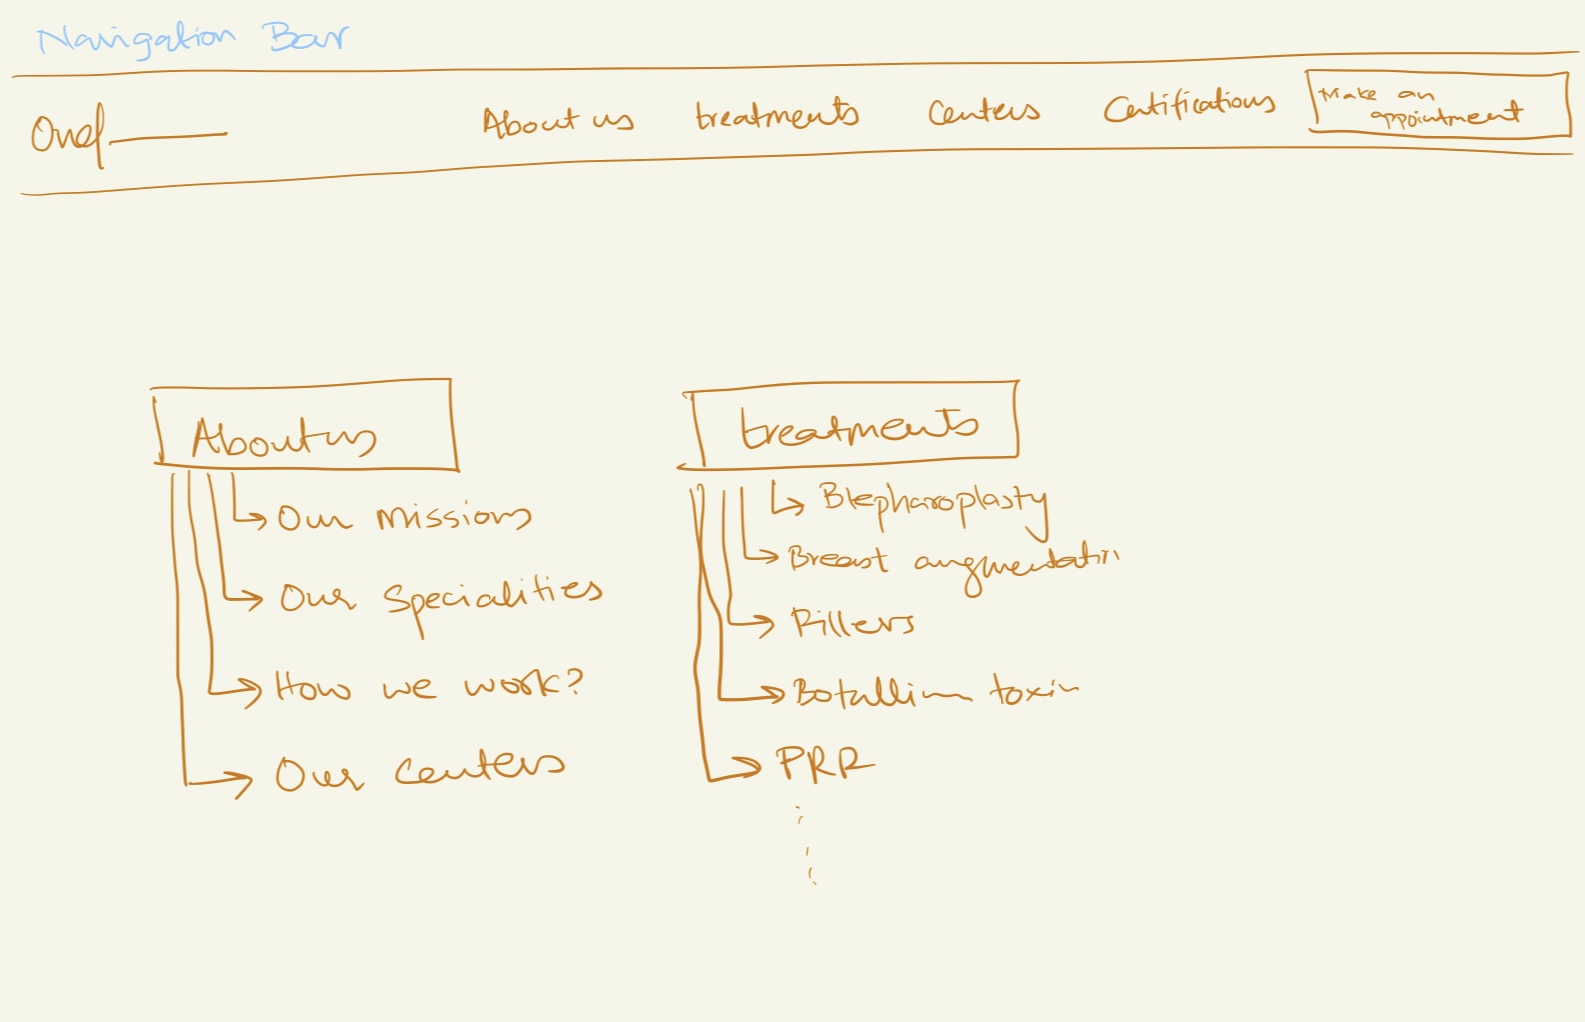 Navigation Bar
About us treatments Centers Certifications Make an
appointment
About us
Our missions
Our Specialities
How we work?
Our Centers
treatments
Blepharoplasty
Breast augmentation
Fillers
toxin
PRR